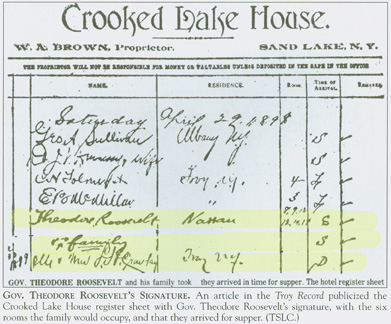 Crooked Lake House.
W. A. BROWN, Proprietor. SAND LAKE, N. Y.
THE PROPRIETOR WILL NOT BE RESPONSIBLE FOR MONEY OR VALUABLES UNLESS DEPOSITED IN THE SAFE IN THE OFFICE
NAME. RESIDENCE. ROOM. TIME OF ARRIVAL. REMARKS.
Saturday April 29, 1898
Geo A Sullivan Albany N.Y. S
wife S
Troy N.Y. 4 L
E P McMillan " 3
Theodore Roosevelt Nassau S
& family S
Mr & Mrs Troy N.Y. D
GOV. THEODORE ROOSEVELT and his family took they arrived in time for supper. The hotel register sheet
GOV. THEODORE ROOSEVELT'S SIGNATURE. An article in the Troy Record publicized the
Crooked Lake House register sheet with Gov. Theodore Roosevelt's signature, with the six
rooms the family would occupy, and that they arrived for supper. (TSLC.)